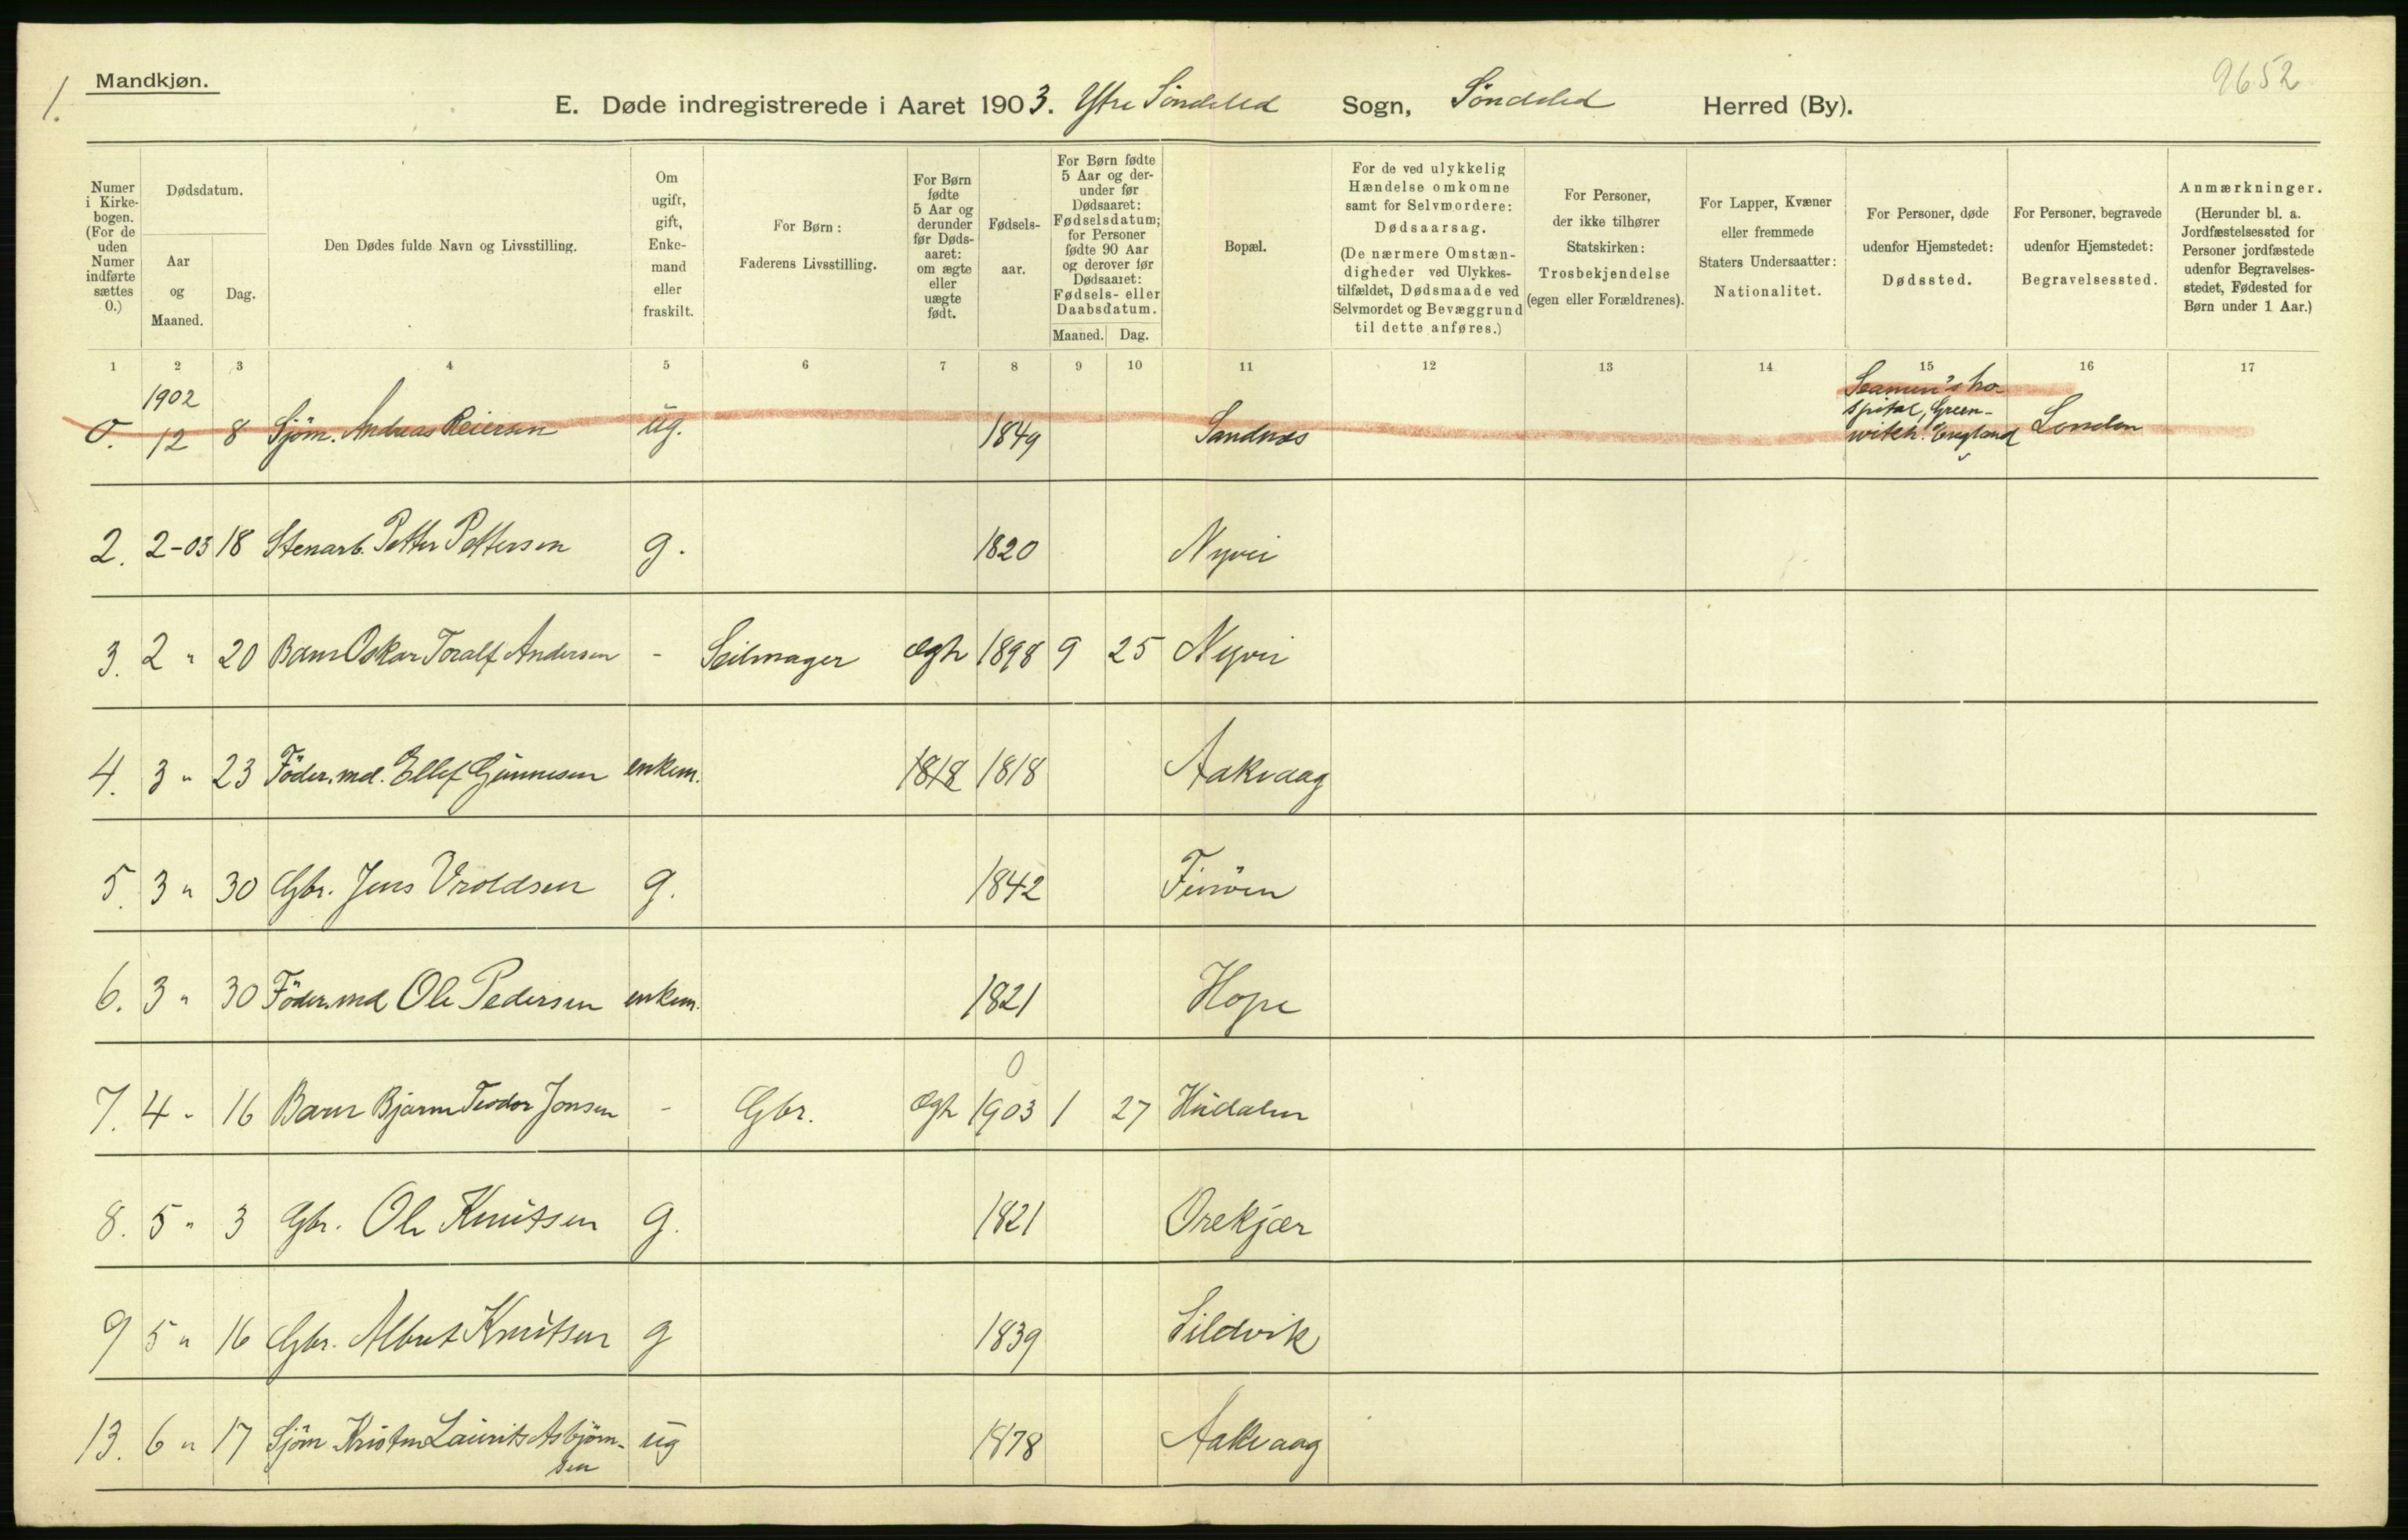 1.
Mandkjøn.
9652
E. Døde indregistrerede i Aaret 1903. Ytre Söndeled Sogn, Söndeled Herred (By).
Numer i Kirkebogen. (For de uden Numer indførte sættes 0.)
Dødsdatum.
Aar og Maaned.
Dag.
Den Dødes fulde Navn og Livsstilling.
Om ugift, gift, Enkemand eller fraskilt.
For Børn: Faderens Livsstilling.
For Børn fødte 5 Aar og derunder før Dødsaaret: om ægte eller uægte født.
Fødselsaar.
For Børn fødte 5 Aar og derunder før Dødsaaret: Fødselsdatum; for Personer fødte 90 Aar og derover før Dødsaaret: Fødsels- eller Daabsdatum.
Maaned. Dag.
Bopæl.
For de ved ulykkelig Hændelse omkomne samt for Selvmordere: Dødsaarsag. (De nærmere Omstændigheder ved Ulykkestilfældet, Dødsmaade ved Selvmordet og Bevæggrund til dette anføres.)
For Personer, der ikke tilhører Statskirken: Trosbekjendelse (egen eller Forældrenes).
For Lapper, Kvæner eller fremmede Staters Undersaatter: Nationalitet.
For Personer, døde udenfor Hjemstedet: Dødssted.
For Personer, begravede udenfor Hjemstedet: Begravelsessted.
Anmærkninger. (Herunder bl. a. Jordfæstelsessted for Personer jordfæstede udenfor Begravelsesstedet, Fødested for Børn under 1 Aar.)
1 2 3 4 5 6 7 8 9 10 11 12 13 14 15 16 17
1902
0. 12 8 Sjöm. Andreas Reiersen ug. 1849 Sandnæs Seamen's hospital, Greenwitch. England London
2. 2-03 18 Stenarb. Petter Pettersen g. 1820 Nyvei
3. 2 " 20 Barn Oskar Toralf Andersen - Seilmager ægte 1898 9 25 Nyvei
4. 3 " 23 Föder.md. Ellef Gunnesen enkem. 1818 1818 Aakvaag
5. 3 " 30 Gbr. Jens Vroldsen g. 1842 Finöen
6. 3 " 30 Föder.md Ole Pedersen enkem. 1821 Hope
0
7. 4 " 16 Barn Bjarne Teodor Jonsen - Gbr. ægte 1903 1 27 Hudalen
8. 5 " 3 Gbr. Ole Knutsen g. 1821 Orekjær
9 5 " 16 Gbr. Albret Knutsen g 1839 Sildvik
13. 6 " 17 Sjöm Kristen Laurits Asbjörnsen ug 1878 Aakvaag